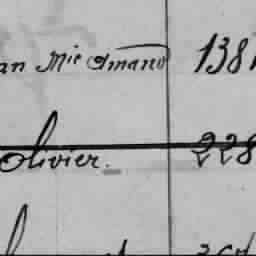 an Mie Amand 138
Olivier. 228